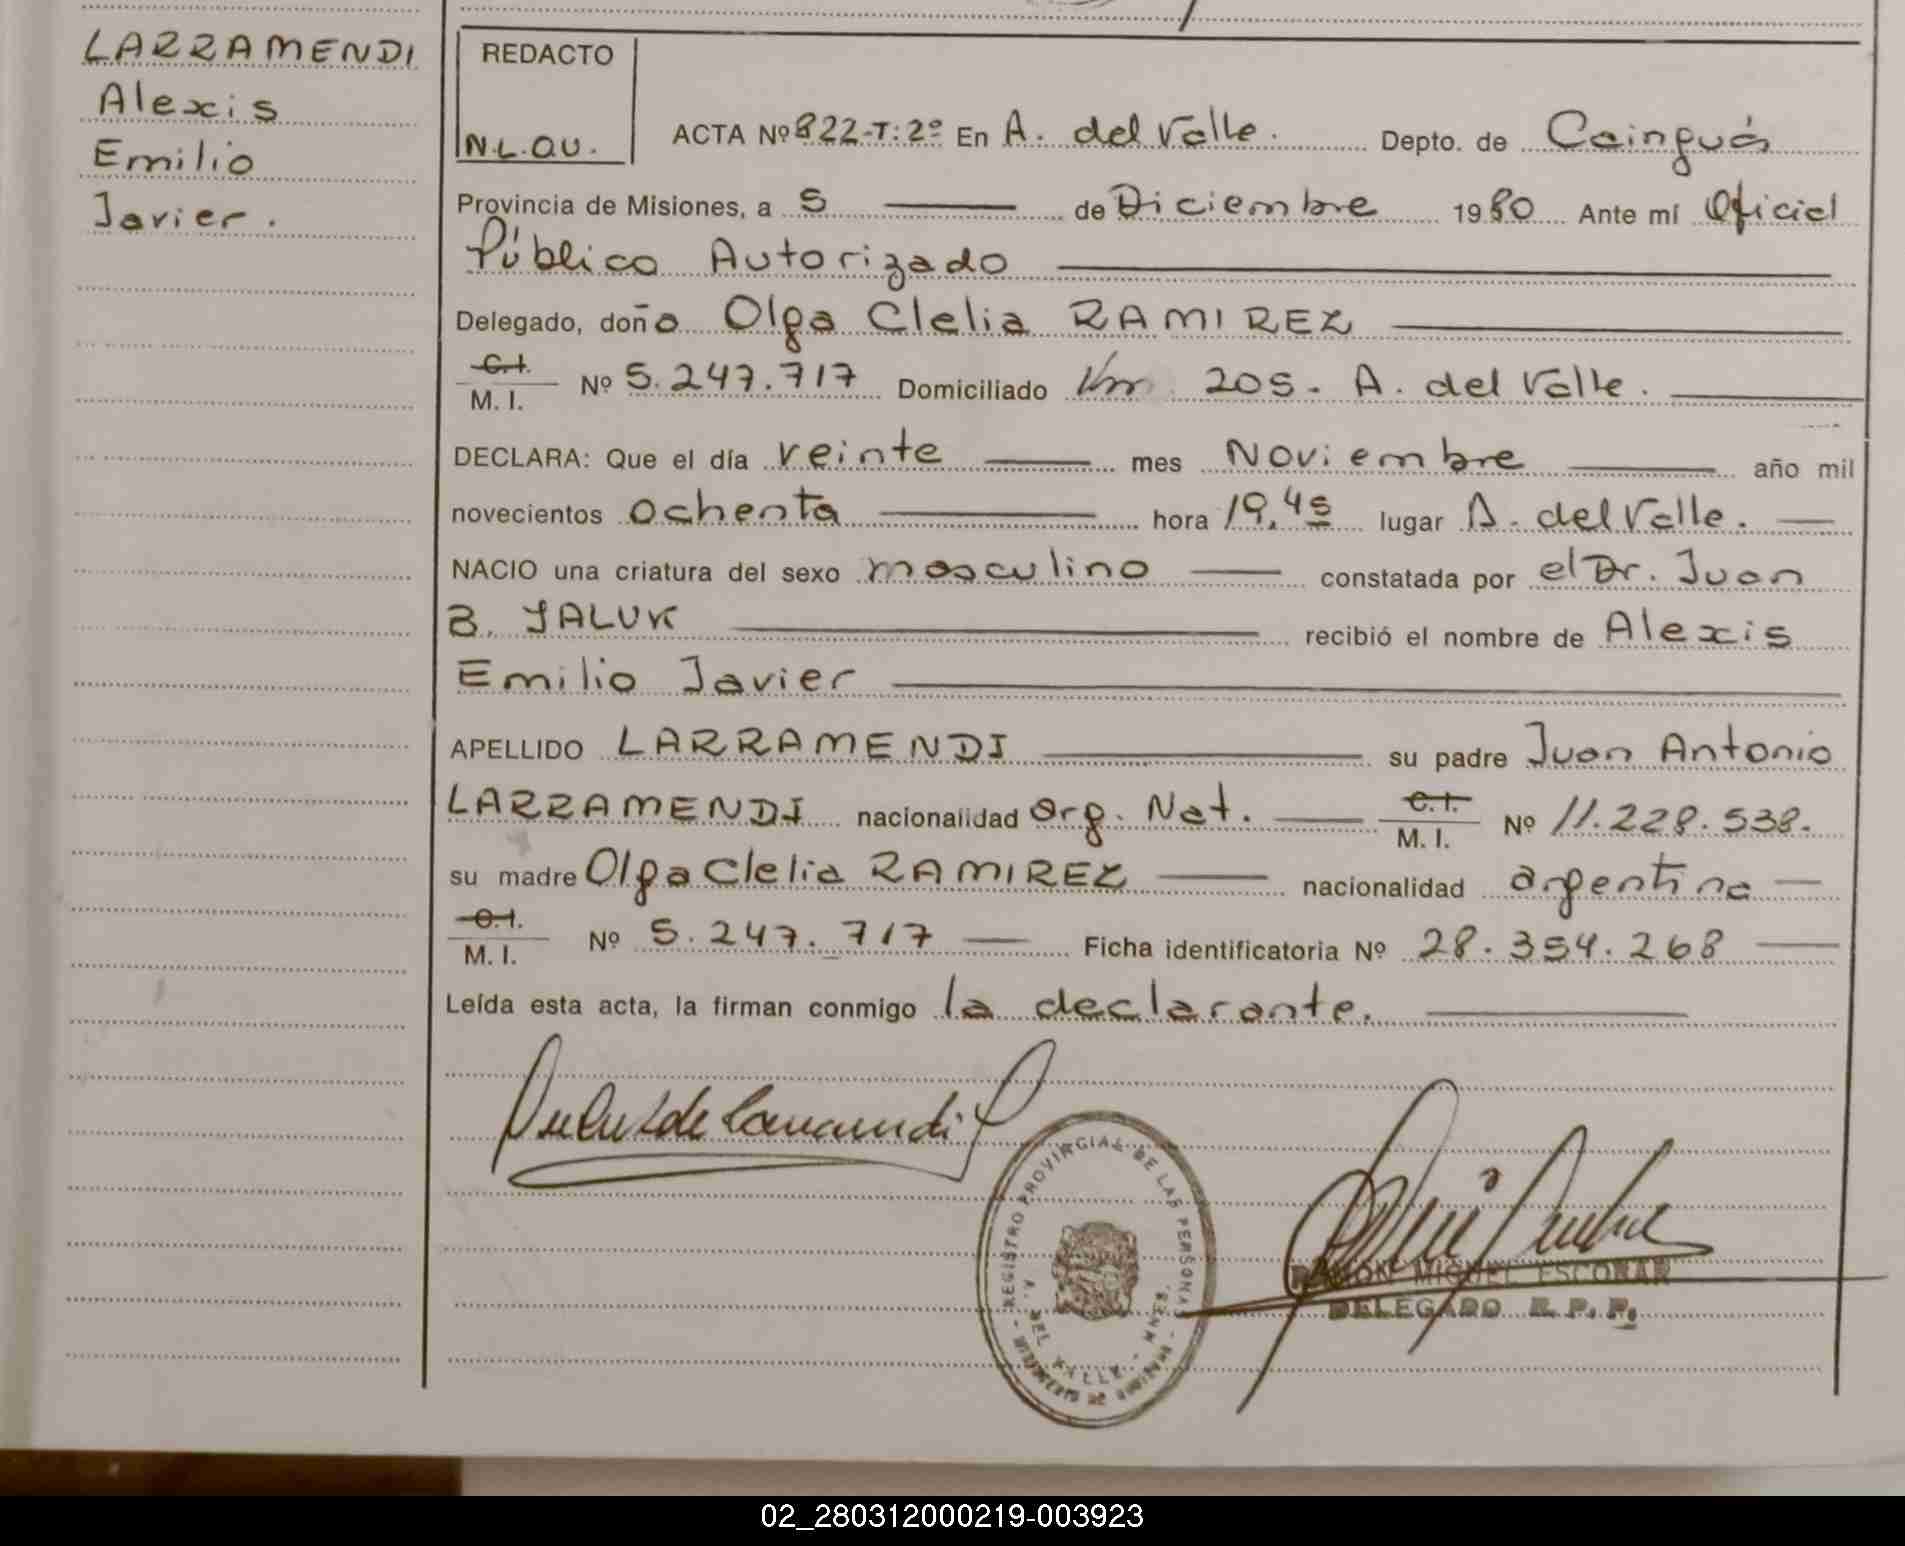 LARRAMENDI
Alexis
Emilio
Javier.
REDACTO
N.L.OU.
ACTA Nº 822-T:2º En A. del Valle. Depto. de Cainguás
Provincia de Misiones, a 5 de Diciembre 1980 Ante mí Oficial
Público Autorizado
Delegado, doña Olga Clelia RAMIREZ
C.I.
M. I. Nº 5.247.717 Domiciliado Km 205. A. del Valle.
DECLARA: Que el día veinte mes Noviembre año mil
novecientos ochenta hora 19,45 lugar A. del Valle.
NACIO una criatura del sexo masculino constatada por el Dr. Juan
B. YALUK recibió el nombre de Alexis
Emilio Javier
APELLIDO LARRAMENDI su padre Juan Antonio
LARRAMENDI nacionalidad arg. Nat. C.I. M. I. Nº 11.228.538.
su madre Olga Clelia RAMIREZ nacionalidad argentina
C.I.
M. I. Nº 5.247.717 Ficha identificatoria Nº 28.354.268
Leída esta acta, la firman conmigo la declarante.
de Larramendi
REGISTRO PROVINCIAL DE LAS PERSONAS
A. DEL VALLE - MNES.
RAMON MIGUEL ESCOBAR
DELEGADO R. P. P.
02_280312000219-003923